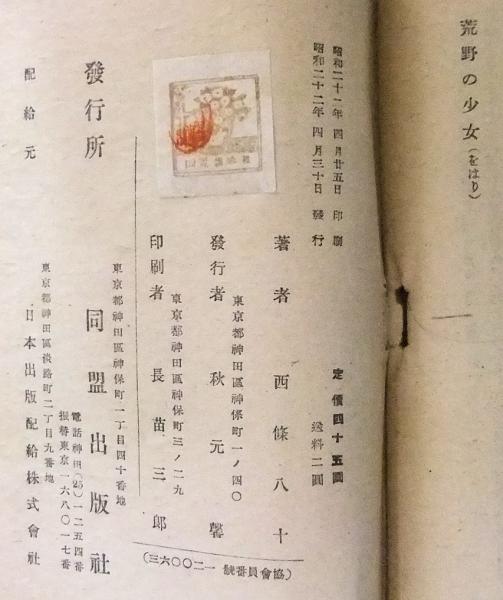 荒野の少女（をはり）
昭和二十二年 四月廿五日 印刷
昭和二十二年 四月三十日 發行
定價四十五圓
送料二圓
著者 西條八十
東京都神田區神保町一ノ四〇
發行者 秋元馨
東京都神田區神保町三ノ二九
印刷者 長苗三郎
（三六〇〇二一 號番員會協）
東京都神田區神保町一丁目四十番地
發行所 同盟出版社
電話神田(25)一二五四番
振替東京一六八〇一七番
東京都神田區淡路町二丁目九番地
配給元 日本出版配給株式會社